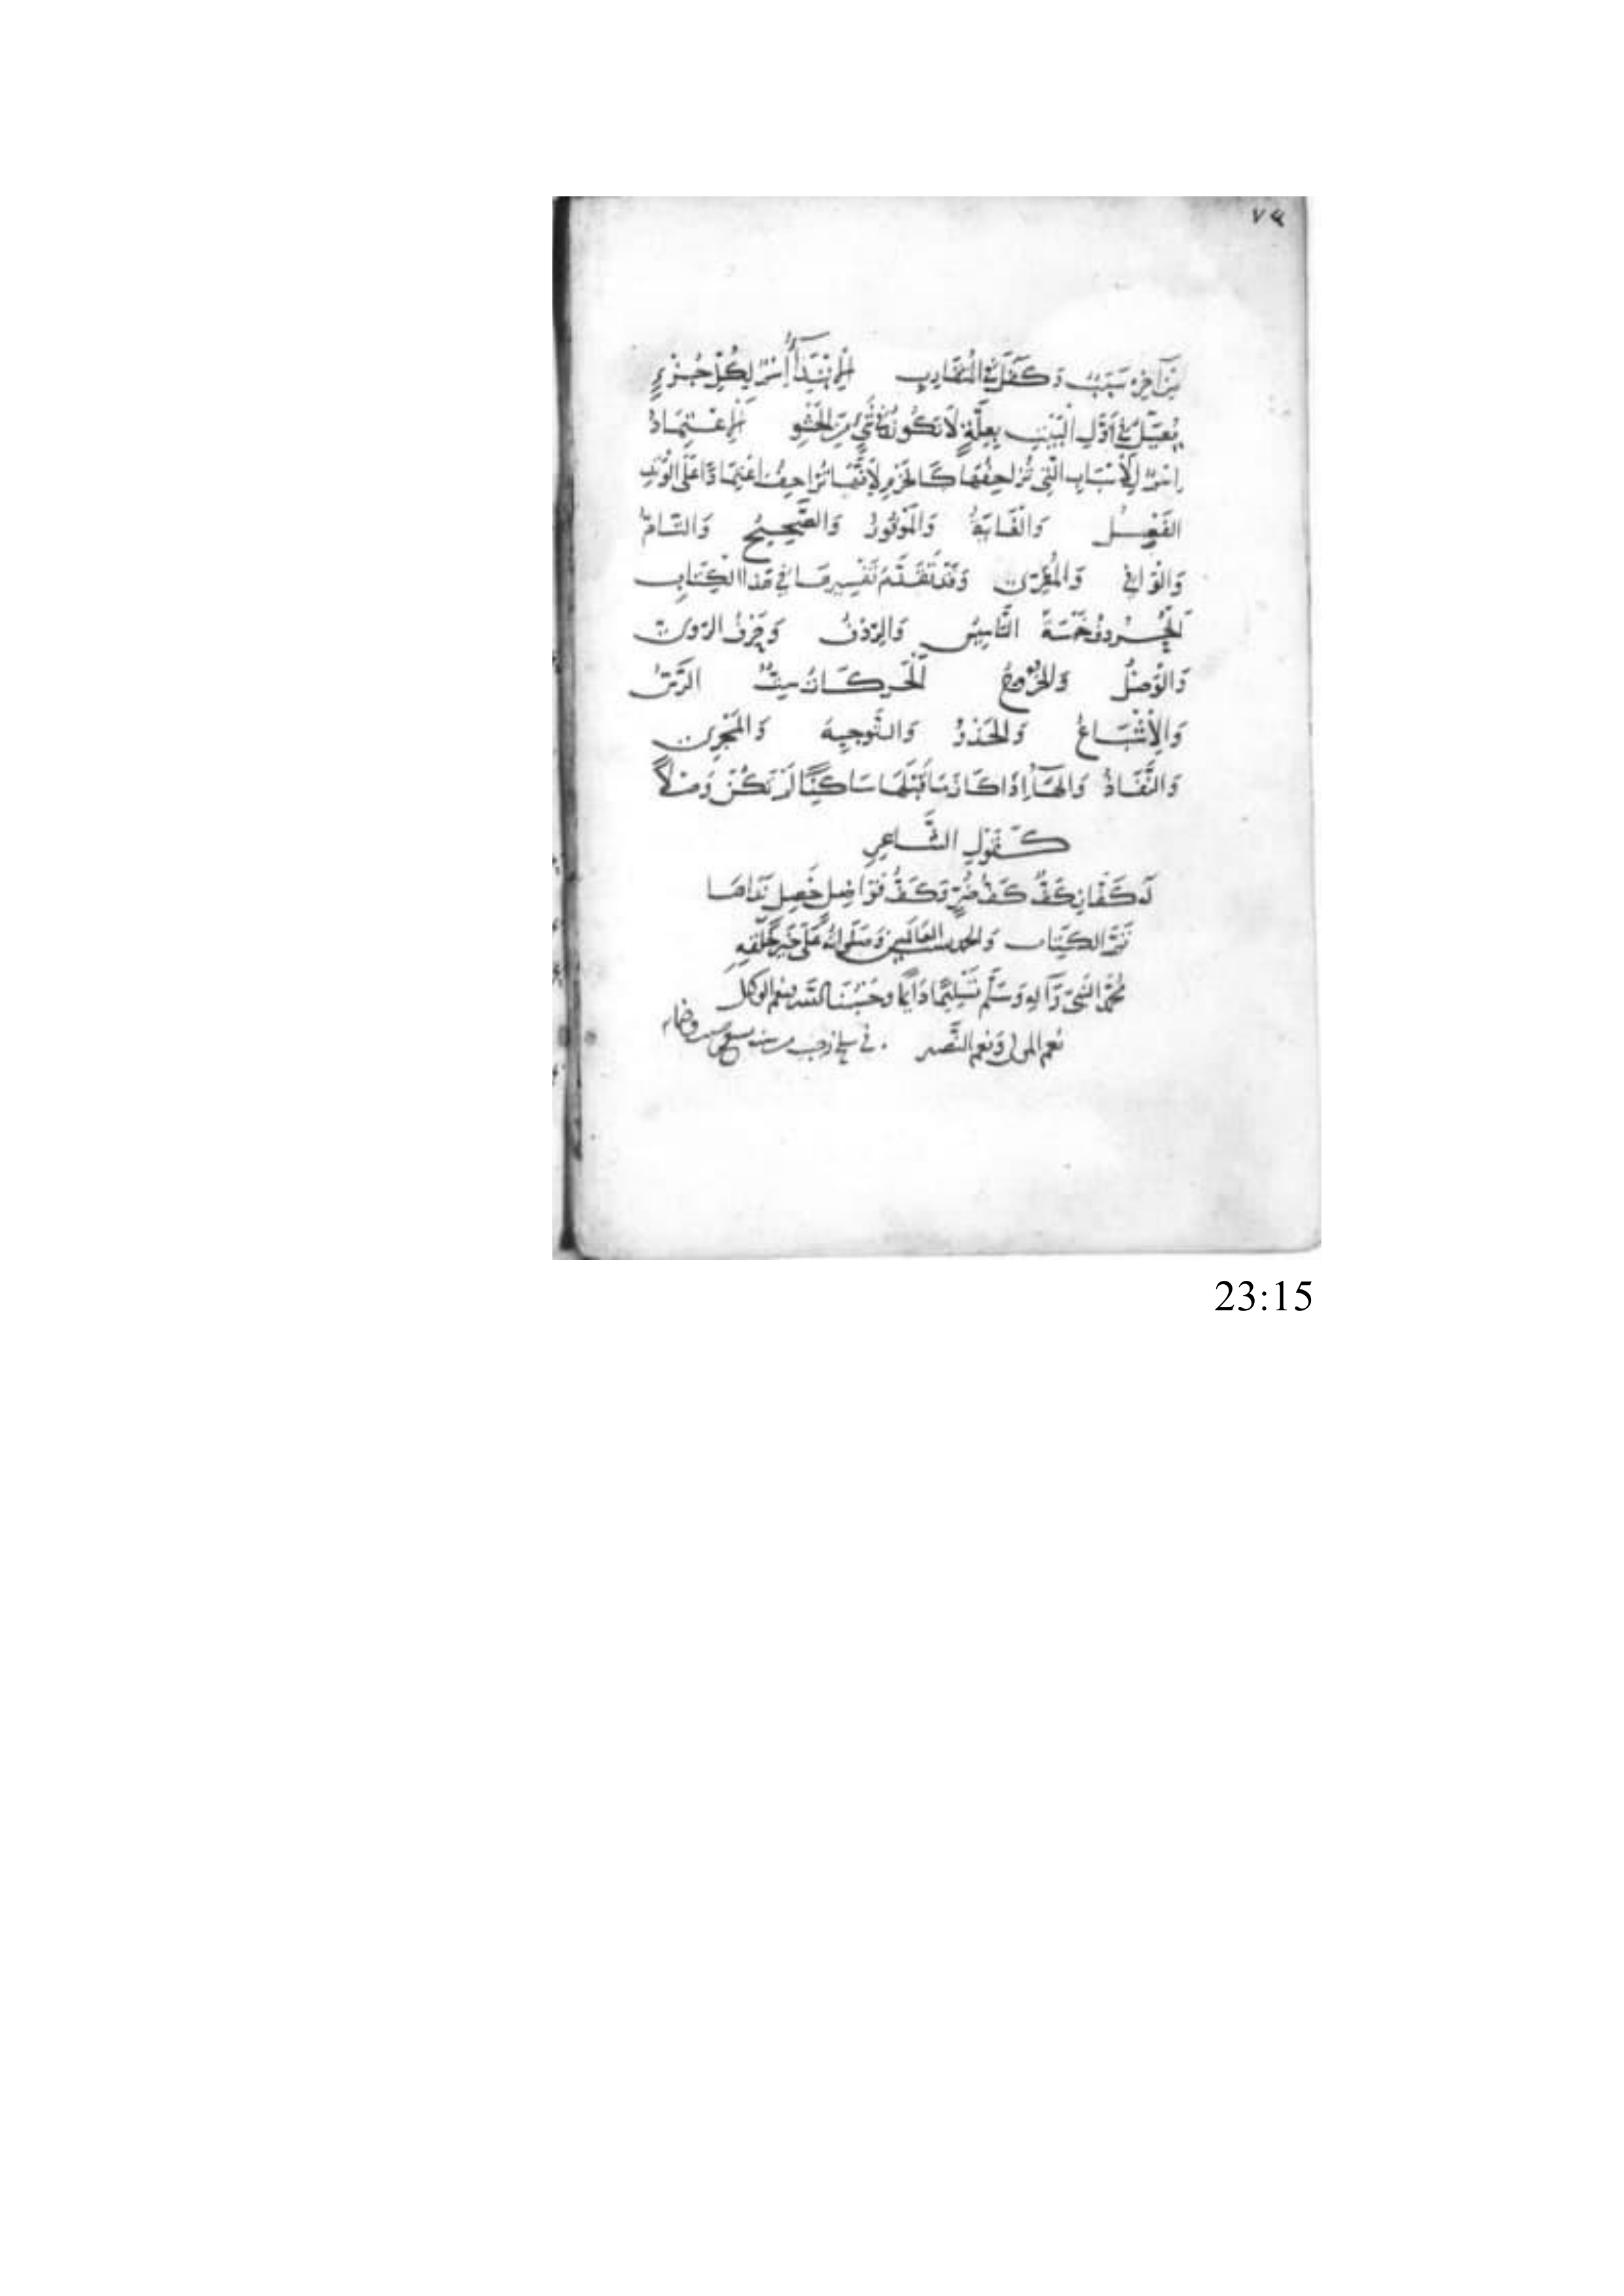 ٧٤
مِنْ آخِرِهِ سَبَبٌ وَكَفَلْ فِي الْمُتَقَارِبِ الْإِبْتِدَآءُ اسْمٌ لِكُلِّ جُزْءٍ
يُعَتَلُّ فِي أَوَّلِ الْبَيْتِ بِعِلَّةٍ لَا تَكُونُ فِي شَيْءٍ مِنَ الْحَشْوِ الْإِعْتِمَادُ
اسْمٌ لِلْأَسْبَابِ الَّتِي تُزَاحِفُهَا كَالْخَرْمِ لِأَنَّهَا تُزَاحِفُ اعْتِمَادًا عَلَى الْوَتِدِ
الفَصْلُ وَالْغَايَةُ وَالْمَوْفُورُ وَالصَّحِيحُ وَالتَّامُّ
وَالْوَافِي وَالْمُعَرَّى وَقَدْ تَقَدَّمَ تَفْسِيرُهَا فِي هَذَا الْكِتَابِ
الْحُرُوفُ خَمْسَةٌ التَّأْسِيسُ وَالرِّدْفُ وَحَرْفُ الرَّوِيِّ
وَالْوَصْلُ وَالْخُرُوجُ الْحَرَكَاتُ سِتٌّ الرَّسُّ
وَالْإِشْبَاعُ وَالْحَذْوُ وَالتَّوْجِيهُ وَالْمَجْرَى
وَالنَّفَاذُ وَالْهَآءُ إِذَا كَانَ مَا قَبْلَهَا سَاكِنًا لَمْ تَكُنْ وَصْلًا
كَقَوْلِ الشَّاعِرِ
لَهُ كَفَّانِ كَفٌّ كَفُّ ضُرٍّ وَكَفُّ فَوَاضِلٍ خَضِلٍ نَدَاهَا
تَمَّ الكِتَاب وَالحمد لله رب العَالَمِين وَصَلَّى اللهُ عَلَى خَيْرِ خَلْقِهِ
مُحَمَّد النَّبِيّ وَآلِهِ وَسَلَّمَ تَسْلِيمًا دَائِمًا وَحَسْبُنَا اللَّه ونعم الوكيل
نعم المولى وَنعم النَّصير . في سلخ رجب من سنة